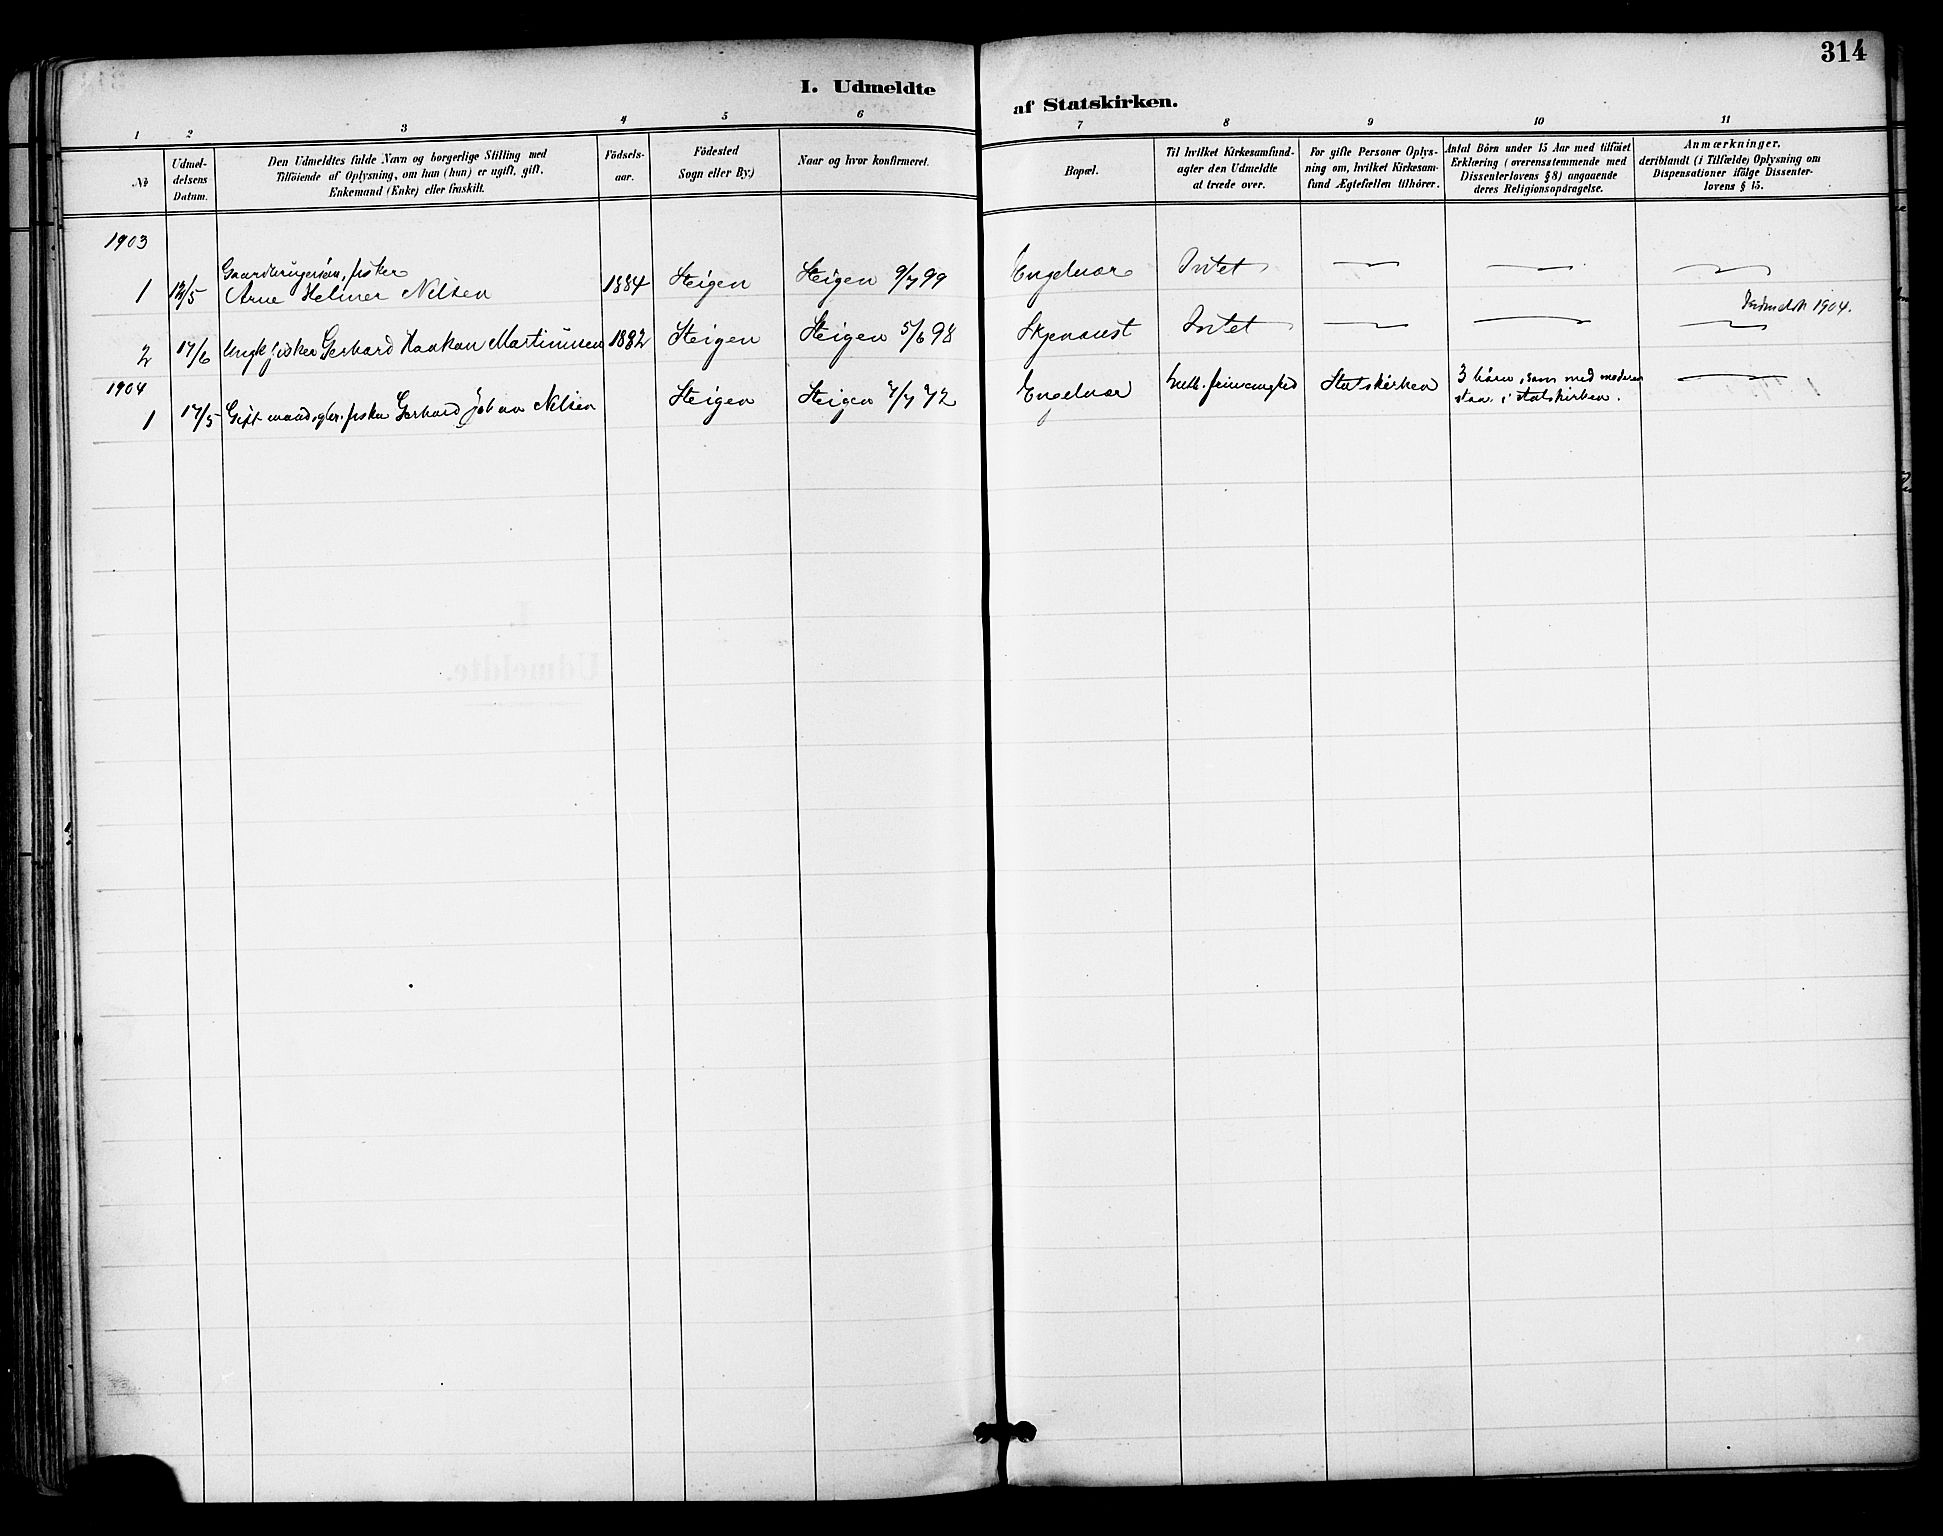 314
I. Udmeldte af Statskirken.
1 2 3 4 5 6 7 8 9 10 11
№
Udmel-
delsens
Datum.
Den Udmeldtes fulde Navn og borgerlige Stilling med
Tilføiende af Oplysning, om han (hun) er ugift, gift,
Enkemand (Enke) eller fraskilt.
Fødsels-
aar.
Fødested
Sogn eller By.)
Naar og hvor konfirmeret.
Bopæl.
Til hvilket Kirkesamfund-
agter den Udmeldte
at træde over.
For gifte Personer Oplys-
ning om, hvilket Kirkesam-
fund Ægtefællen tilhører.
Antal Børn under 15 Aar med tilføiet
Erklæring (overensstemmende med
Dissenterlovens § 8) angaaende
deres Religionsopdragelse.
Anmærkninger,
deriblandt (i Tilfælde) Oplysning om
Dispensationer ifølge Dissenter-
lovens § 15.
1903
Gaardbrugersøn, fisker
1 12/5 Arne Helmer Nilsen 1884 Steigen Steigen 9/7 99 Engelvær Intet
Indmeldt 1904.
2 17/6 Ungk. fisker Gerhard Haakon Martinussen 1882 Steigen Steigen 5/6 98 Skjenaust Intet
1904
1 17/5 Gift mand, fisker Gerhard Johan Nilsen Steigen Steigen 7/7 72 Engelvær Luth. frimenighed Statskirken 3 børn, som med moderen
staa i statskirken.